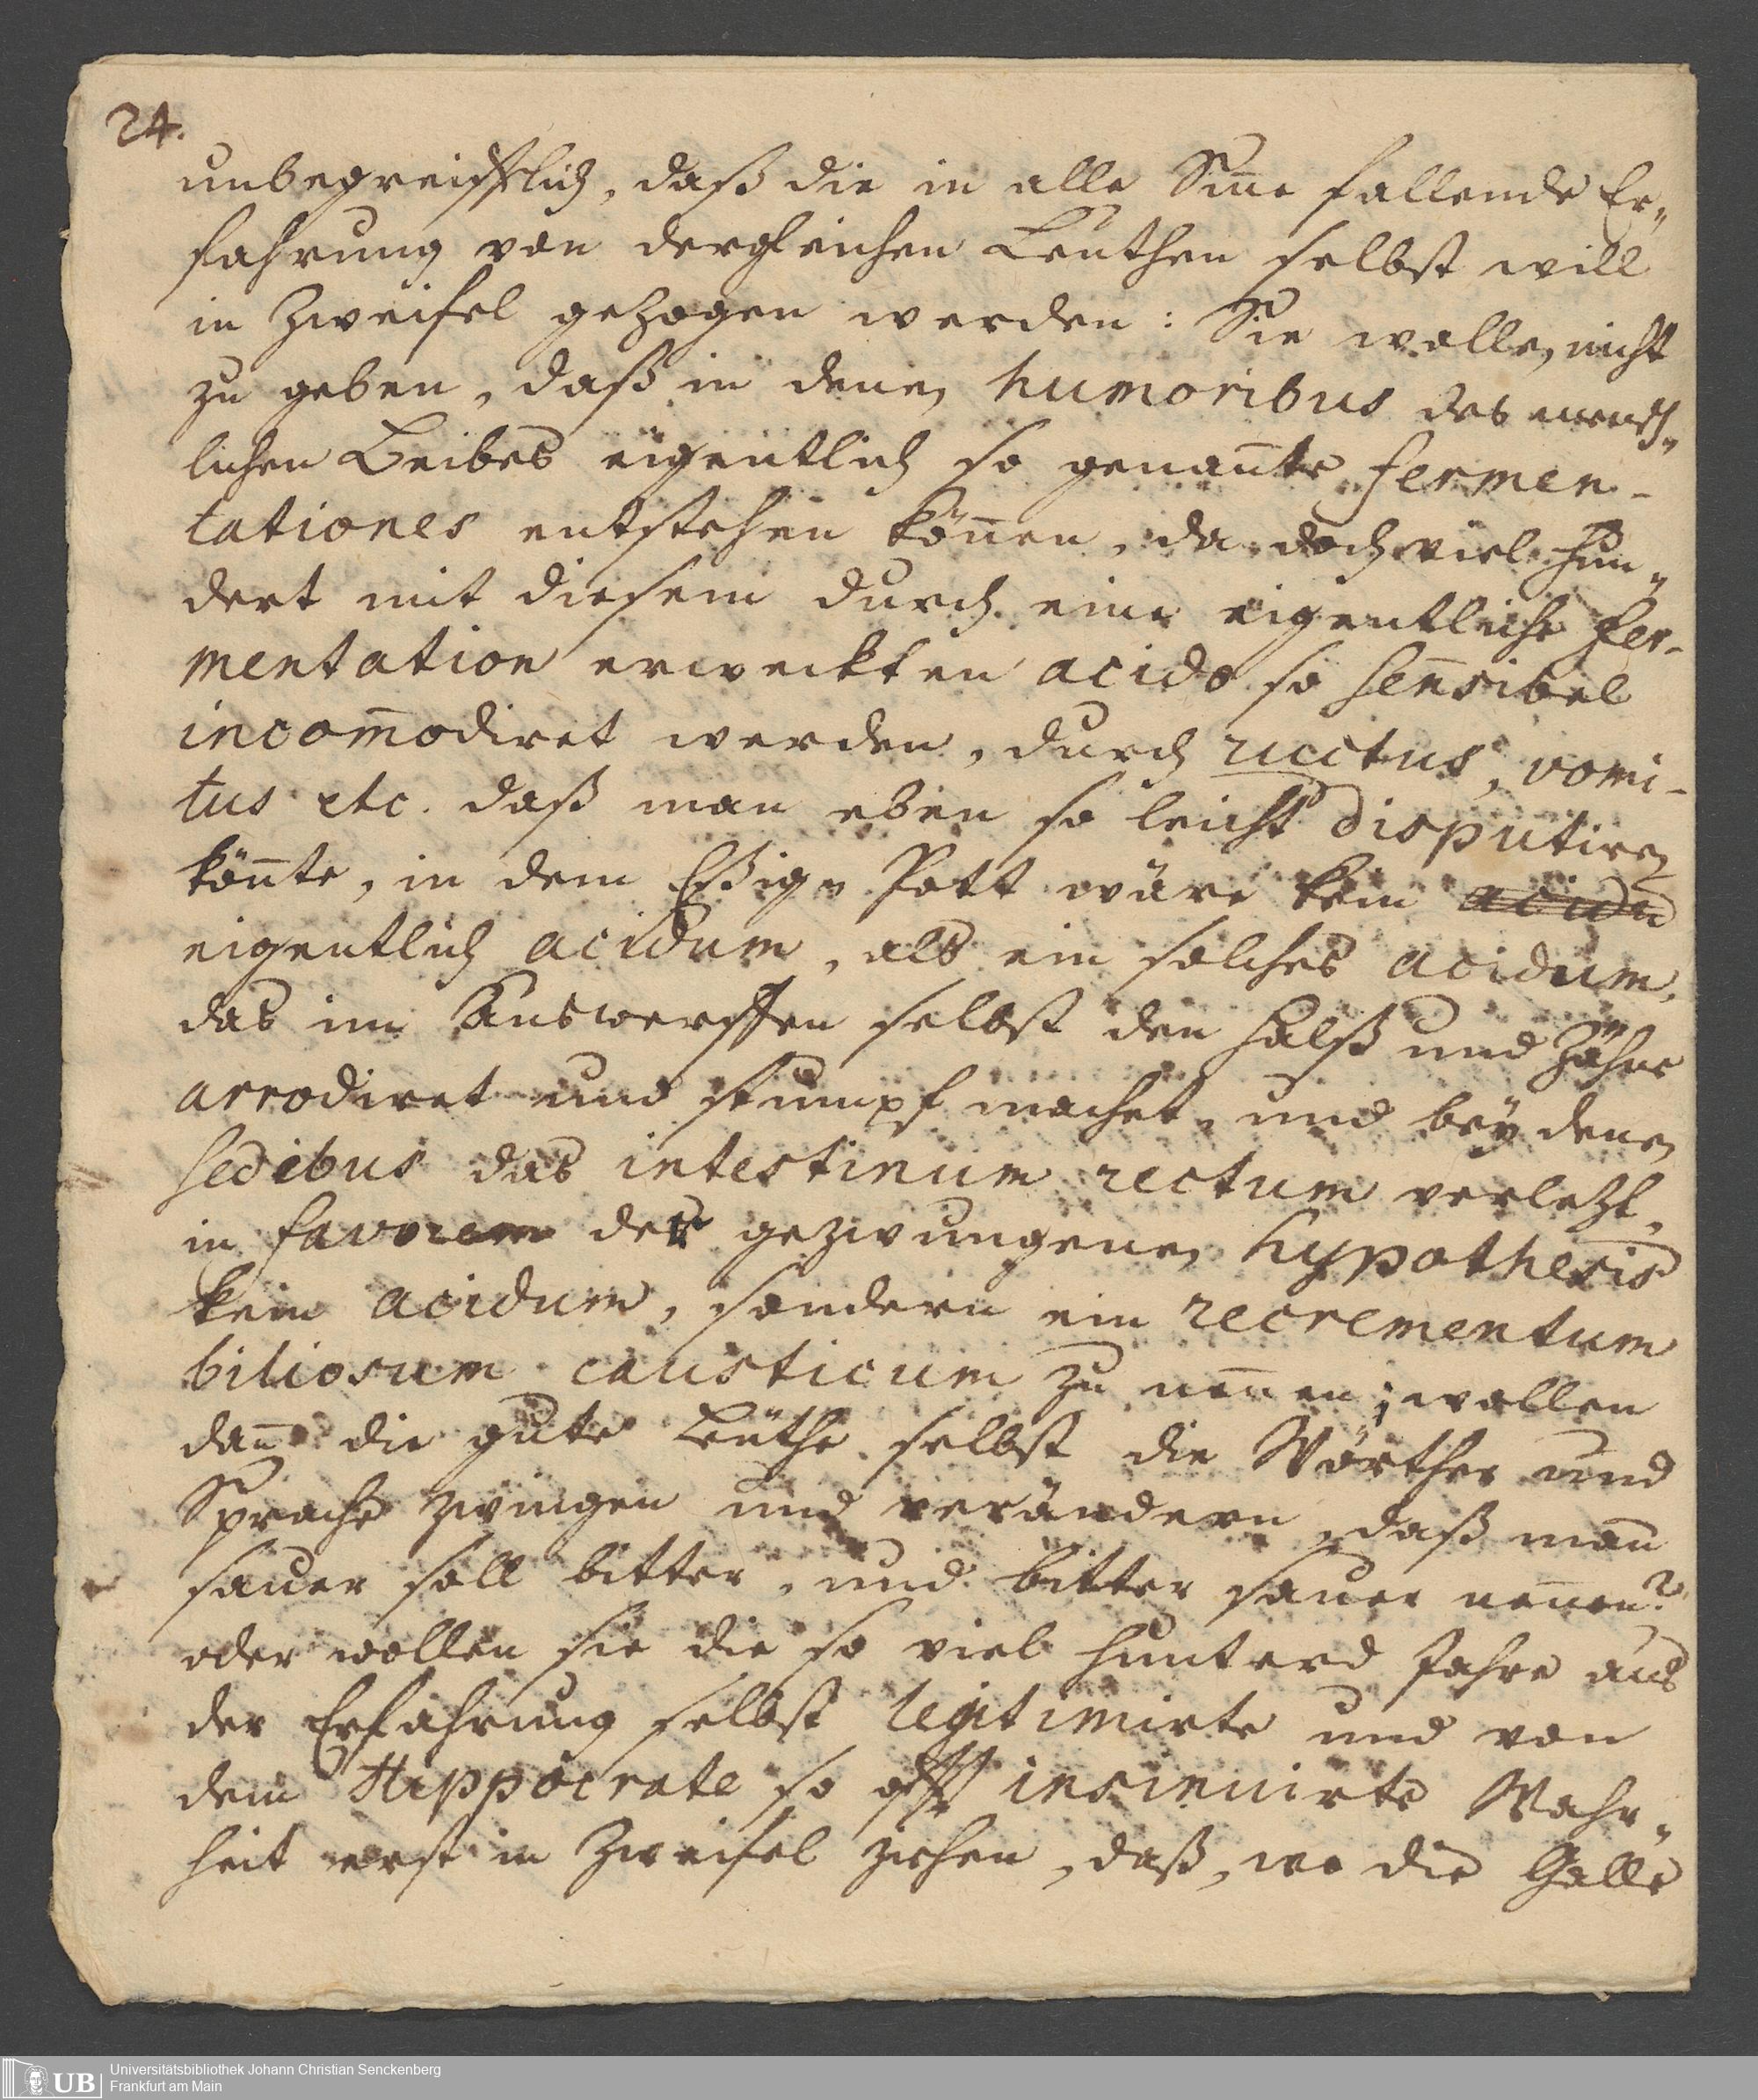 24.
unbegreifflich, daß die in alle Siñe fallende Er„
fahrung von dergleichen Leuthen selbst will
in Zweifel gezogen werden: Sie wollen nicht
zu geben, daß in denen humoribus des mensch„
lichen Leibes eigentlich so genañte fermen-
tationes entstehen köñen, da doch viel hun„
dert mit diesem durch eine eigentliche fer-
mentation erweckten acido so sensibel
incom̄odiret werden, durch ructus, vomi-
tus etc. daß man eben so leicht disputiren
köñte, in dem Eßig„Pott wäre kein acidu
eigentlich acidum, als ein solches acidum,
das im Auswerffen selbst den Halß und Zähne
arrodiret und stumpf machet, und bey denen
sedibus das intestinum rectum verlezt,
in favorem der gezwungenen hypothesis
kein acidum, sondern ein recrementum
biliosum causticum zu neñen; wollen
dañ die gute Leüthe selbst die Wörther und
Sprache zwingen und verändern, daß mañ
sauer soll bitter, und bitter sauer neñen?
oder wollen sie die so viel hunterd Jahre aus
der Erfahrung selbst legitimirte und von
dem Hippocrate so offt insinuirte Wahr„
heit erst in Zweifel ziehen, daß, wo die Galle
UB
Universitätsbibliothek Johann Christian Senckenberg
Frankfurt am Main